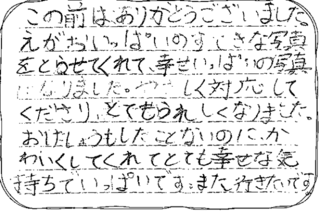 この前はありがとうございました。
えがおいっぱいのすてきな写真
をとらせてくれて、幸せいっぱいの写真
になりました。やさしく対応して
くださり、とてもうれしくなりました。
おけしょうもしたことないのに、か
わいくしてくれてとても幸せな気
持ちでいっぱいです。また行きたいです